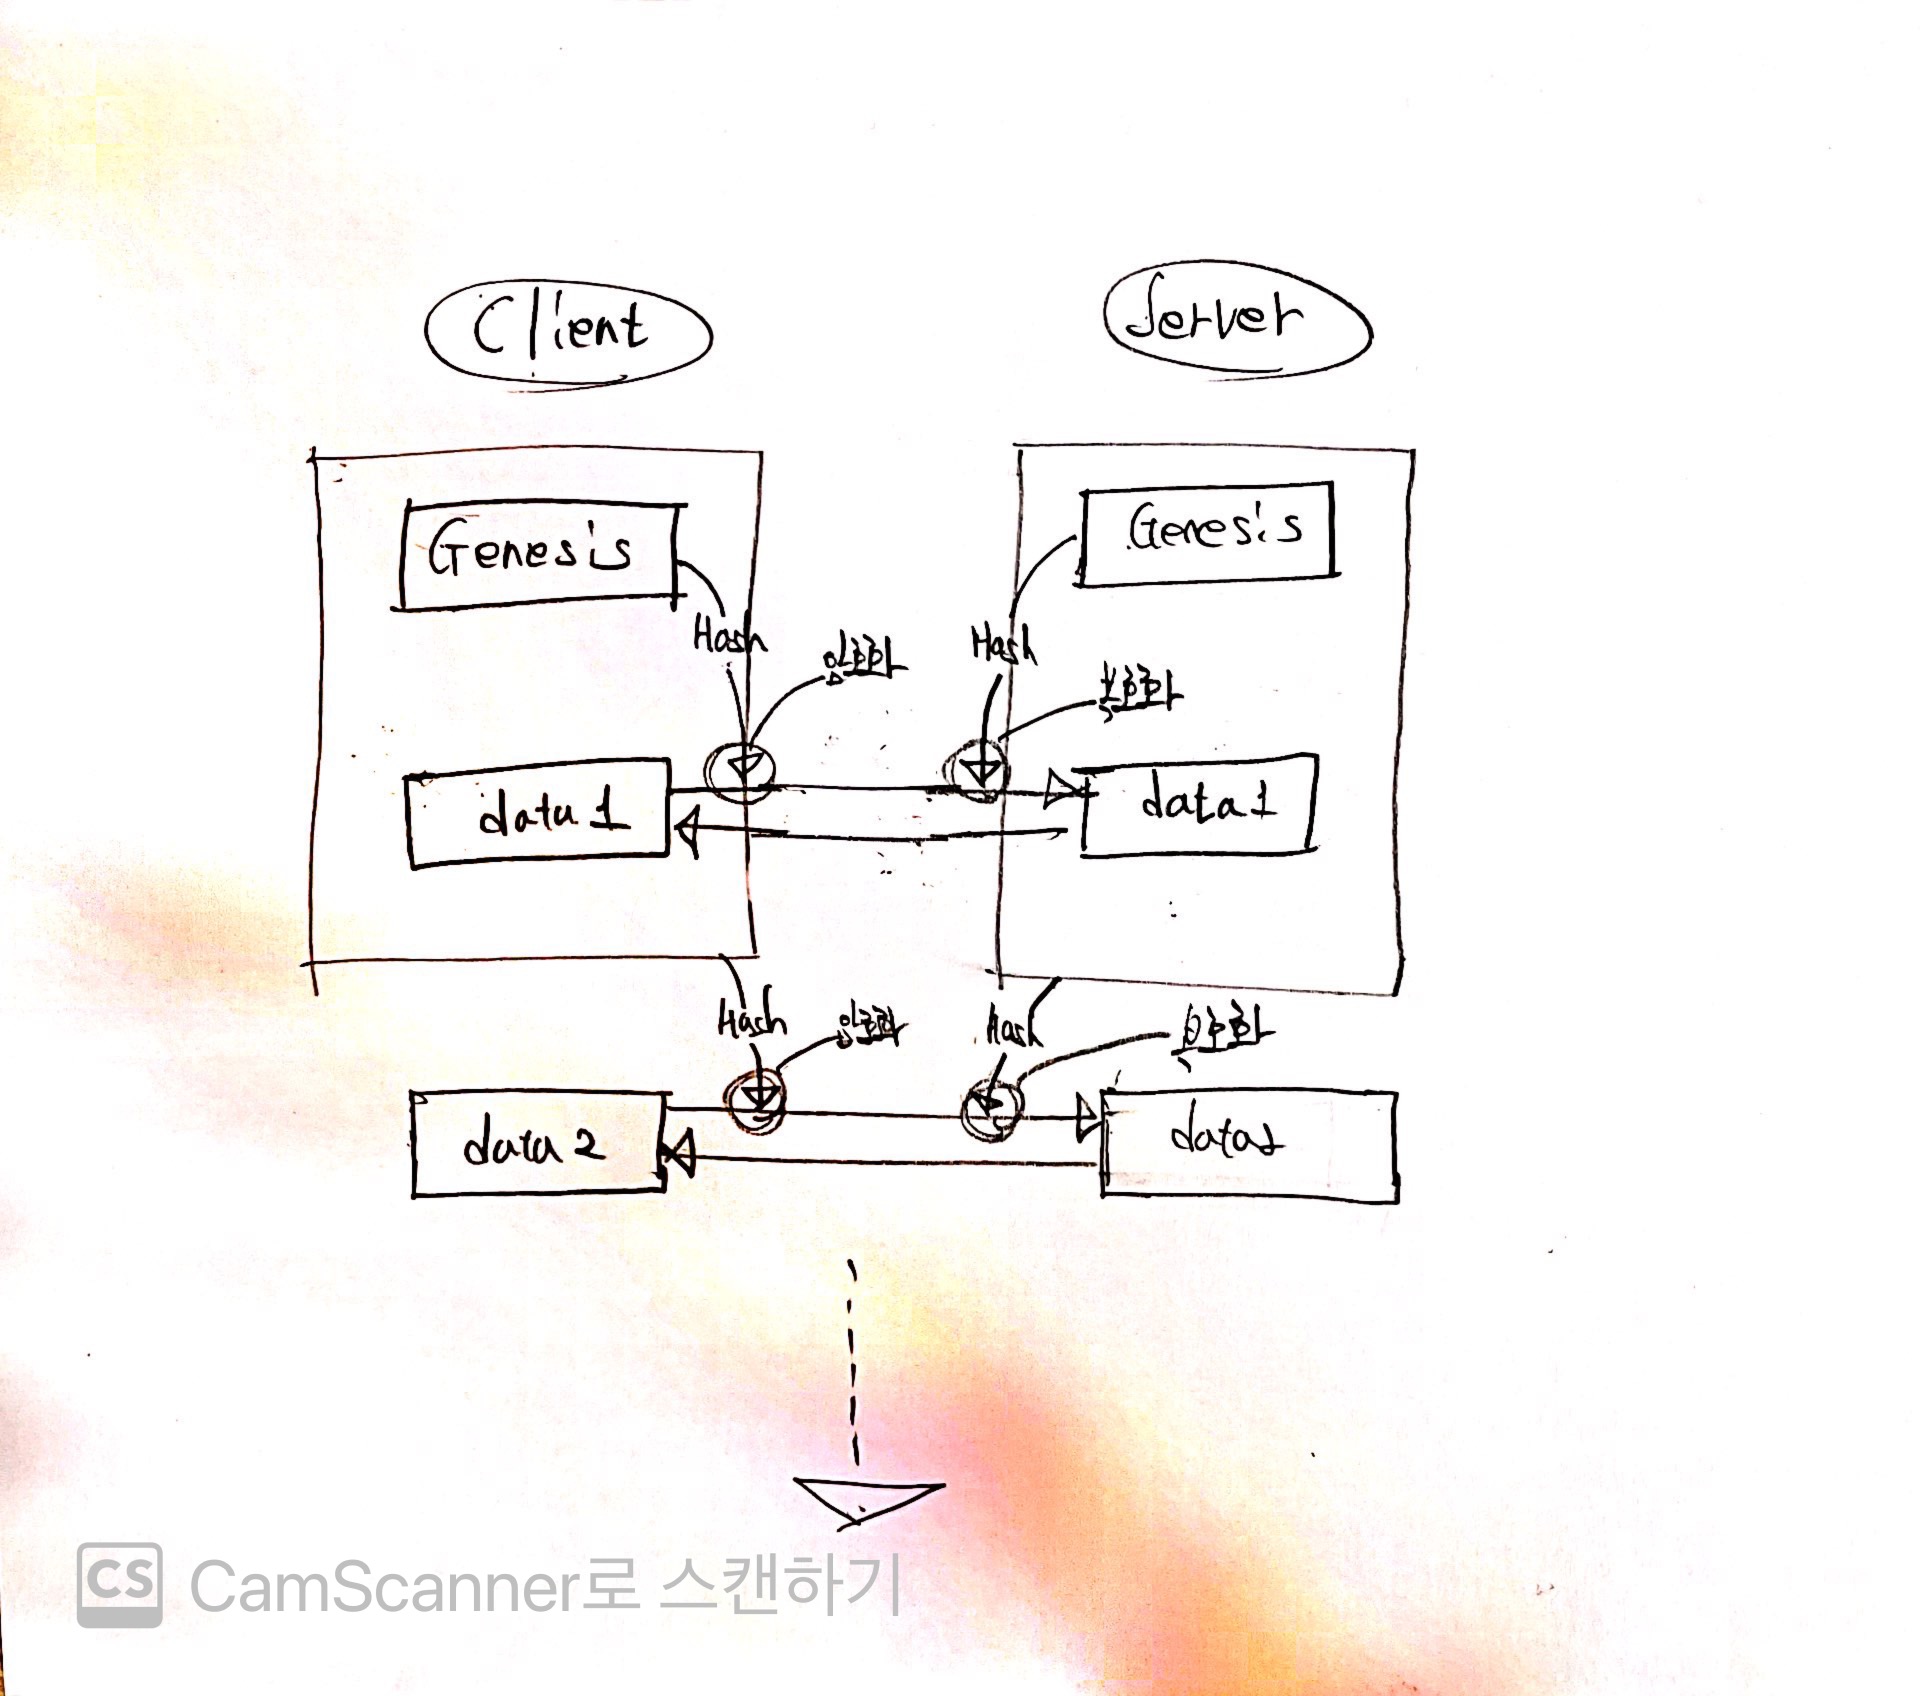 Client
Server
Genesis
Genesis
Hash
암호화
Hash
복호화
data 1
data 1
Hash
암호화
Hash
복호화
data 2
CS CamScanner로 스캔하기